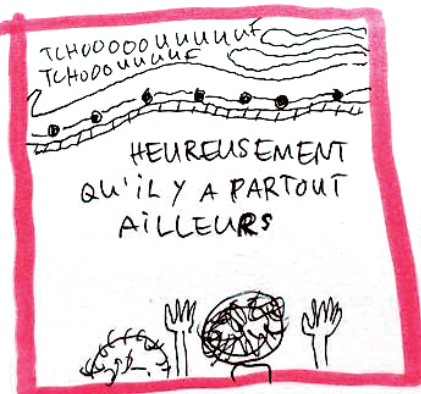 TCHOOOOOUUUUUUF
TCHOOOUUUUF
HEUREUSEMENT
QU'IL Y A PARTOUT
AILLEURS